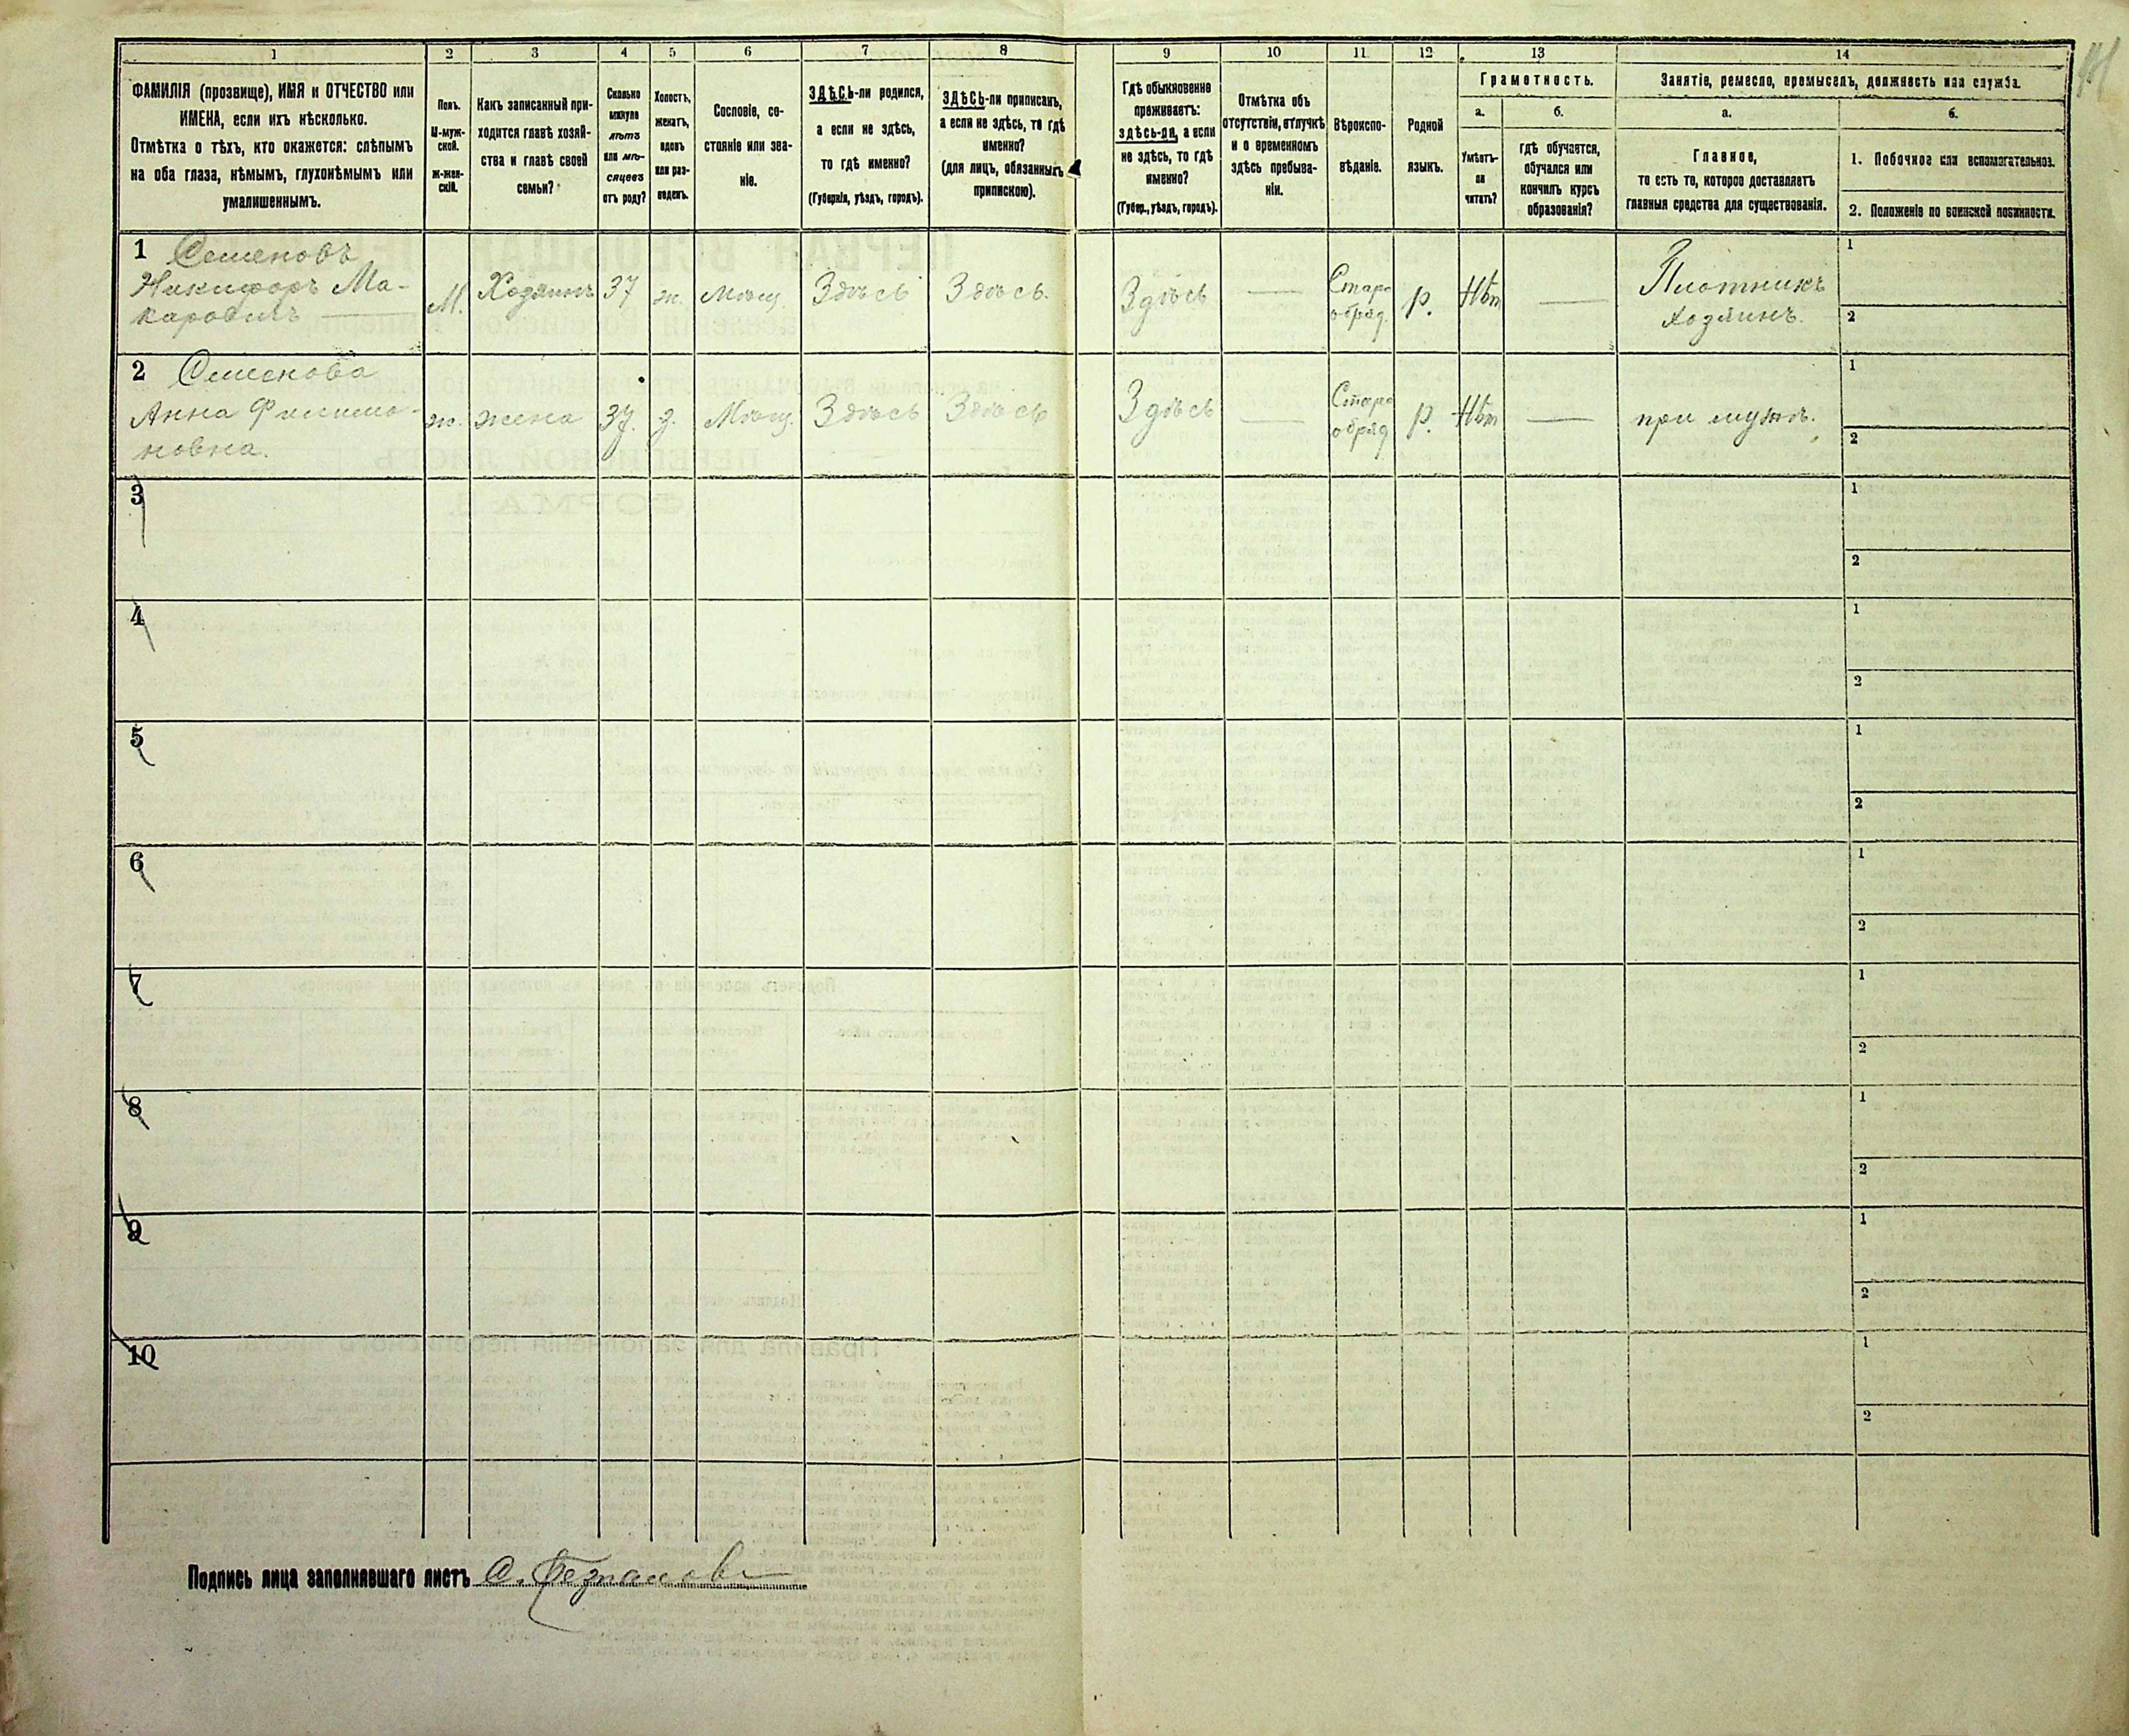 1 2 3 4 5 6 7 8 9 10 11 12 13 14
ФАМИЛІЯ (прозвище), ИМЯ и ОТЧЕСТВО или
ИМЕНА, если ихъ нѣсколько.
Отмѣтка о тѣхъ, кто окажется: слѣпымъ
на оба глаза, нѣмымъ, глухонѣмымъ или
умалишеннымъ.
Полъ.
М-муж-
ской.
ж-жен-
скій.
Какъ записанный при-
ходится главѣ хозяй-
ства и главѣ своей
семьи?
Сколько
минуло
лѣтъ
или мѣ-
сяцевъ
отъ роду?
Холостъ,
женатъ,
вдовъ
или раз-
веденъ.
Сословіе, со-
стояніе или зва-
ніе.
ЗДѢСЬ-ли родился,
а если не здѣсь,
то гдѣ именно?
(Губернія, уѣздъ, городъ).
ЗДѢСЬ-ли приписанъ,
а если не здѣсь, то гдѣ
именно?
(для лицъ, обязанныхъ
припискою).
Гдѣ обыкновенно
проживаетъ:
здѣсь-ли, а если
не здѣсь, то гдѣ
именно?
(Губер., уѣздъ, городъ).
Отмѣтка объ
отсутствіи, отлучкѣ
и о временномъ
здѣсь пребыва-
ніи.
Вѣроиспо-
вѣданіе.
Родной
языкъ.
Грамотность.
а.
Умѣетъ-
ли
читать?
б.
гдѣ обучается,
обучался или
кончилъ курсъ
образованія?
Занятіе, ремесло, промыселъ, должность или служба.
а.
Главное,
то есть то, которое доставляетъ
главныя средства для существованія.
б.
1. Побочное или вспомогательное.
2. Положеніе по воинской повинности.
1 Семеновъ
Никифоръ Ма-
каровичъ
М.
Хозяинъ
37
ж.
Мѣщ.
Здѣсь
Здѣсь.
Здѣсь
Старо
обряд.
р.
Нѣт
Плотникъ
хозяинъ.
1
2
2 Семенова
Анна Филимо-
новна.
ж.
жена
37.
з.
Мѣщ.
Здѣсь
Здѣсь
Здѣсь
Старо
обряд
р.
Нѣт
при мужѣ.
1
2
3
1
2
4
1
2
5
1
2
6
1
2
7
1
2
8
1
2
9
1
2
10
1
2
Подпись лица заполнявшаго листъ